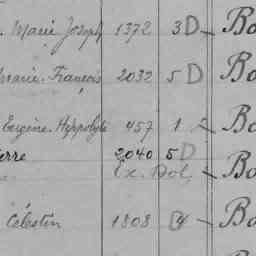 Marie Joseph 1372 3 D Bo
Marie. François 2032 5 D Bo
Eugène. Hyppolyte 457 1 Bo
erre 2040 5 D
Ex. Dol, Bo
Célestin 1808 4 Bo